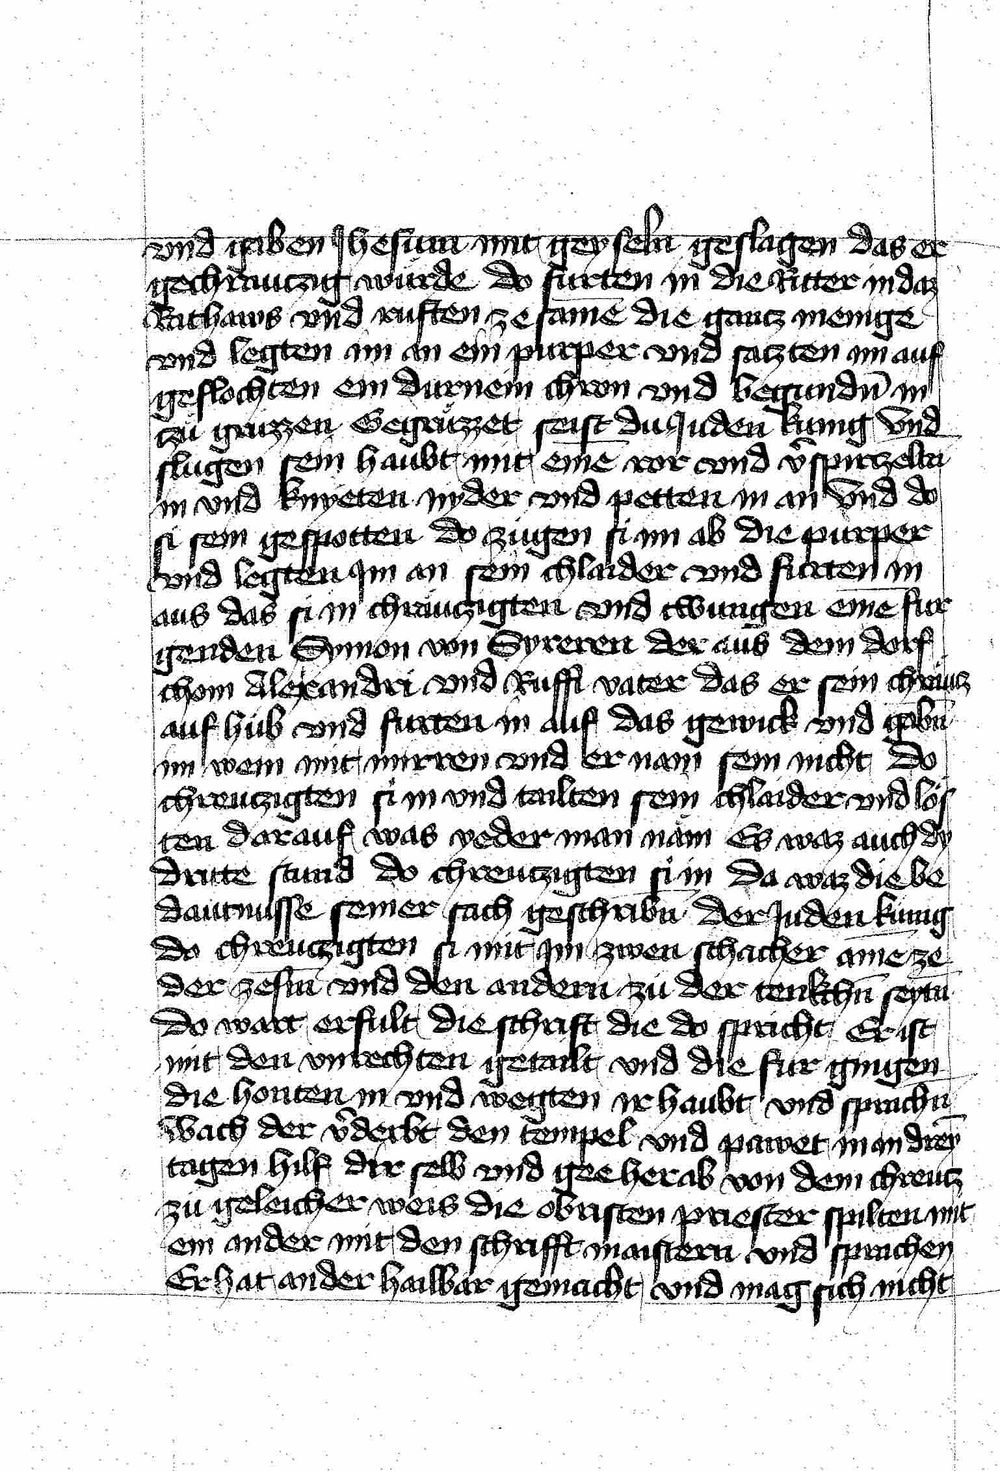 vnd gaben Jhesum mit geyseln geslagen das er
gechräuczig würde do fürten in die Ritter in daz
Rathaws vnd ruften zesāme die gancz menige
vnd legten im an ein purper vnd saczten im auf
geflochten ein dürnein chron vnd begundn̄ in
zů grüzzen Gegrüzzet seist du Juden künig Vnd
slugen sein haubt mit eine ror vnd v̄spirczelten
in vnd knyeten nyder vnd petten in an Vnd do
si sein gespotten do zügen si im ab die purper
vnd legten Im an sein chlaider vnd fürten in
aus das si in chräuczigten vnd twungen eine für
genden Symon von Syreren der aus dem dorf
chom Alexandri vnd Ruffi vater das er sein chräucz
auf hüb vnd fürten in auf das gewick vnd gabn̄
im wein mit mirren vnd er nam sein nicht Do
chreuczigten si in vnd tailten sein chlaider vnd lös
ten darauf was yederman näm Es waz auch dy
dritte stund do chreuczigten si in Da waz die be
dautnüsse seiner sach geschribn̄ Der Juden künig
do chreuczigten si mit Im zwen schacher aine ze
der zesm̄ vnd den andern zu der tenkchn̄ seytn
Do wart erfült die schrift die do spricht Er ist
mit den vnrechten getailt vnd die für gingen
die honten in vnd wegten ir haubt vnd sprachn̄
Wach der v̄derbt den tempel vnd pawet in an drey
tagen hilf dir selb vnd gee herab von dem chreucz
zu geleicher weis die obristen priester spilten mit
ein ander mit den schrifft maistern vnd sprachen
Er hat ander hailbär gemacht vnd mag sich nicht